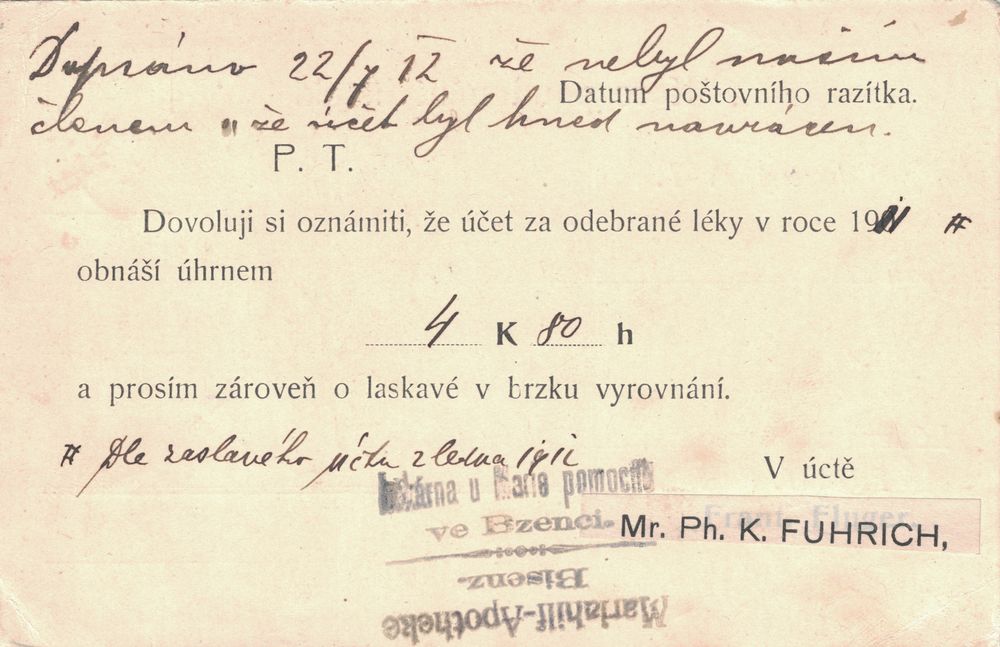 Dopsáno 22/7 12 že nebyl naším
Datum poštovního razítka.
členem a že účet byl hned navrácen.
P. T.
Dovoluji si oznámiti, že účet za odebrané léky v roce 1911 #
obnáší úhrnem
4 K 80 h
a prosím zároveň o laskavé v brzku vyrovnání.
# Dle zaslaného účtu z ledna 1912
V úctě
Lékárna u Marie pomocné
ve Bzenci.
Mr. Ph. K. FUHRICH,
Bisenz.
Mariahilf-Apotheke